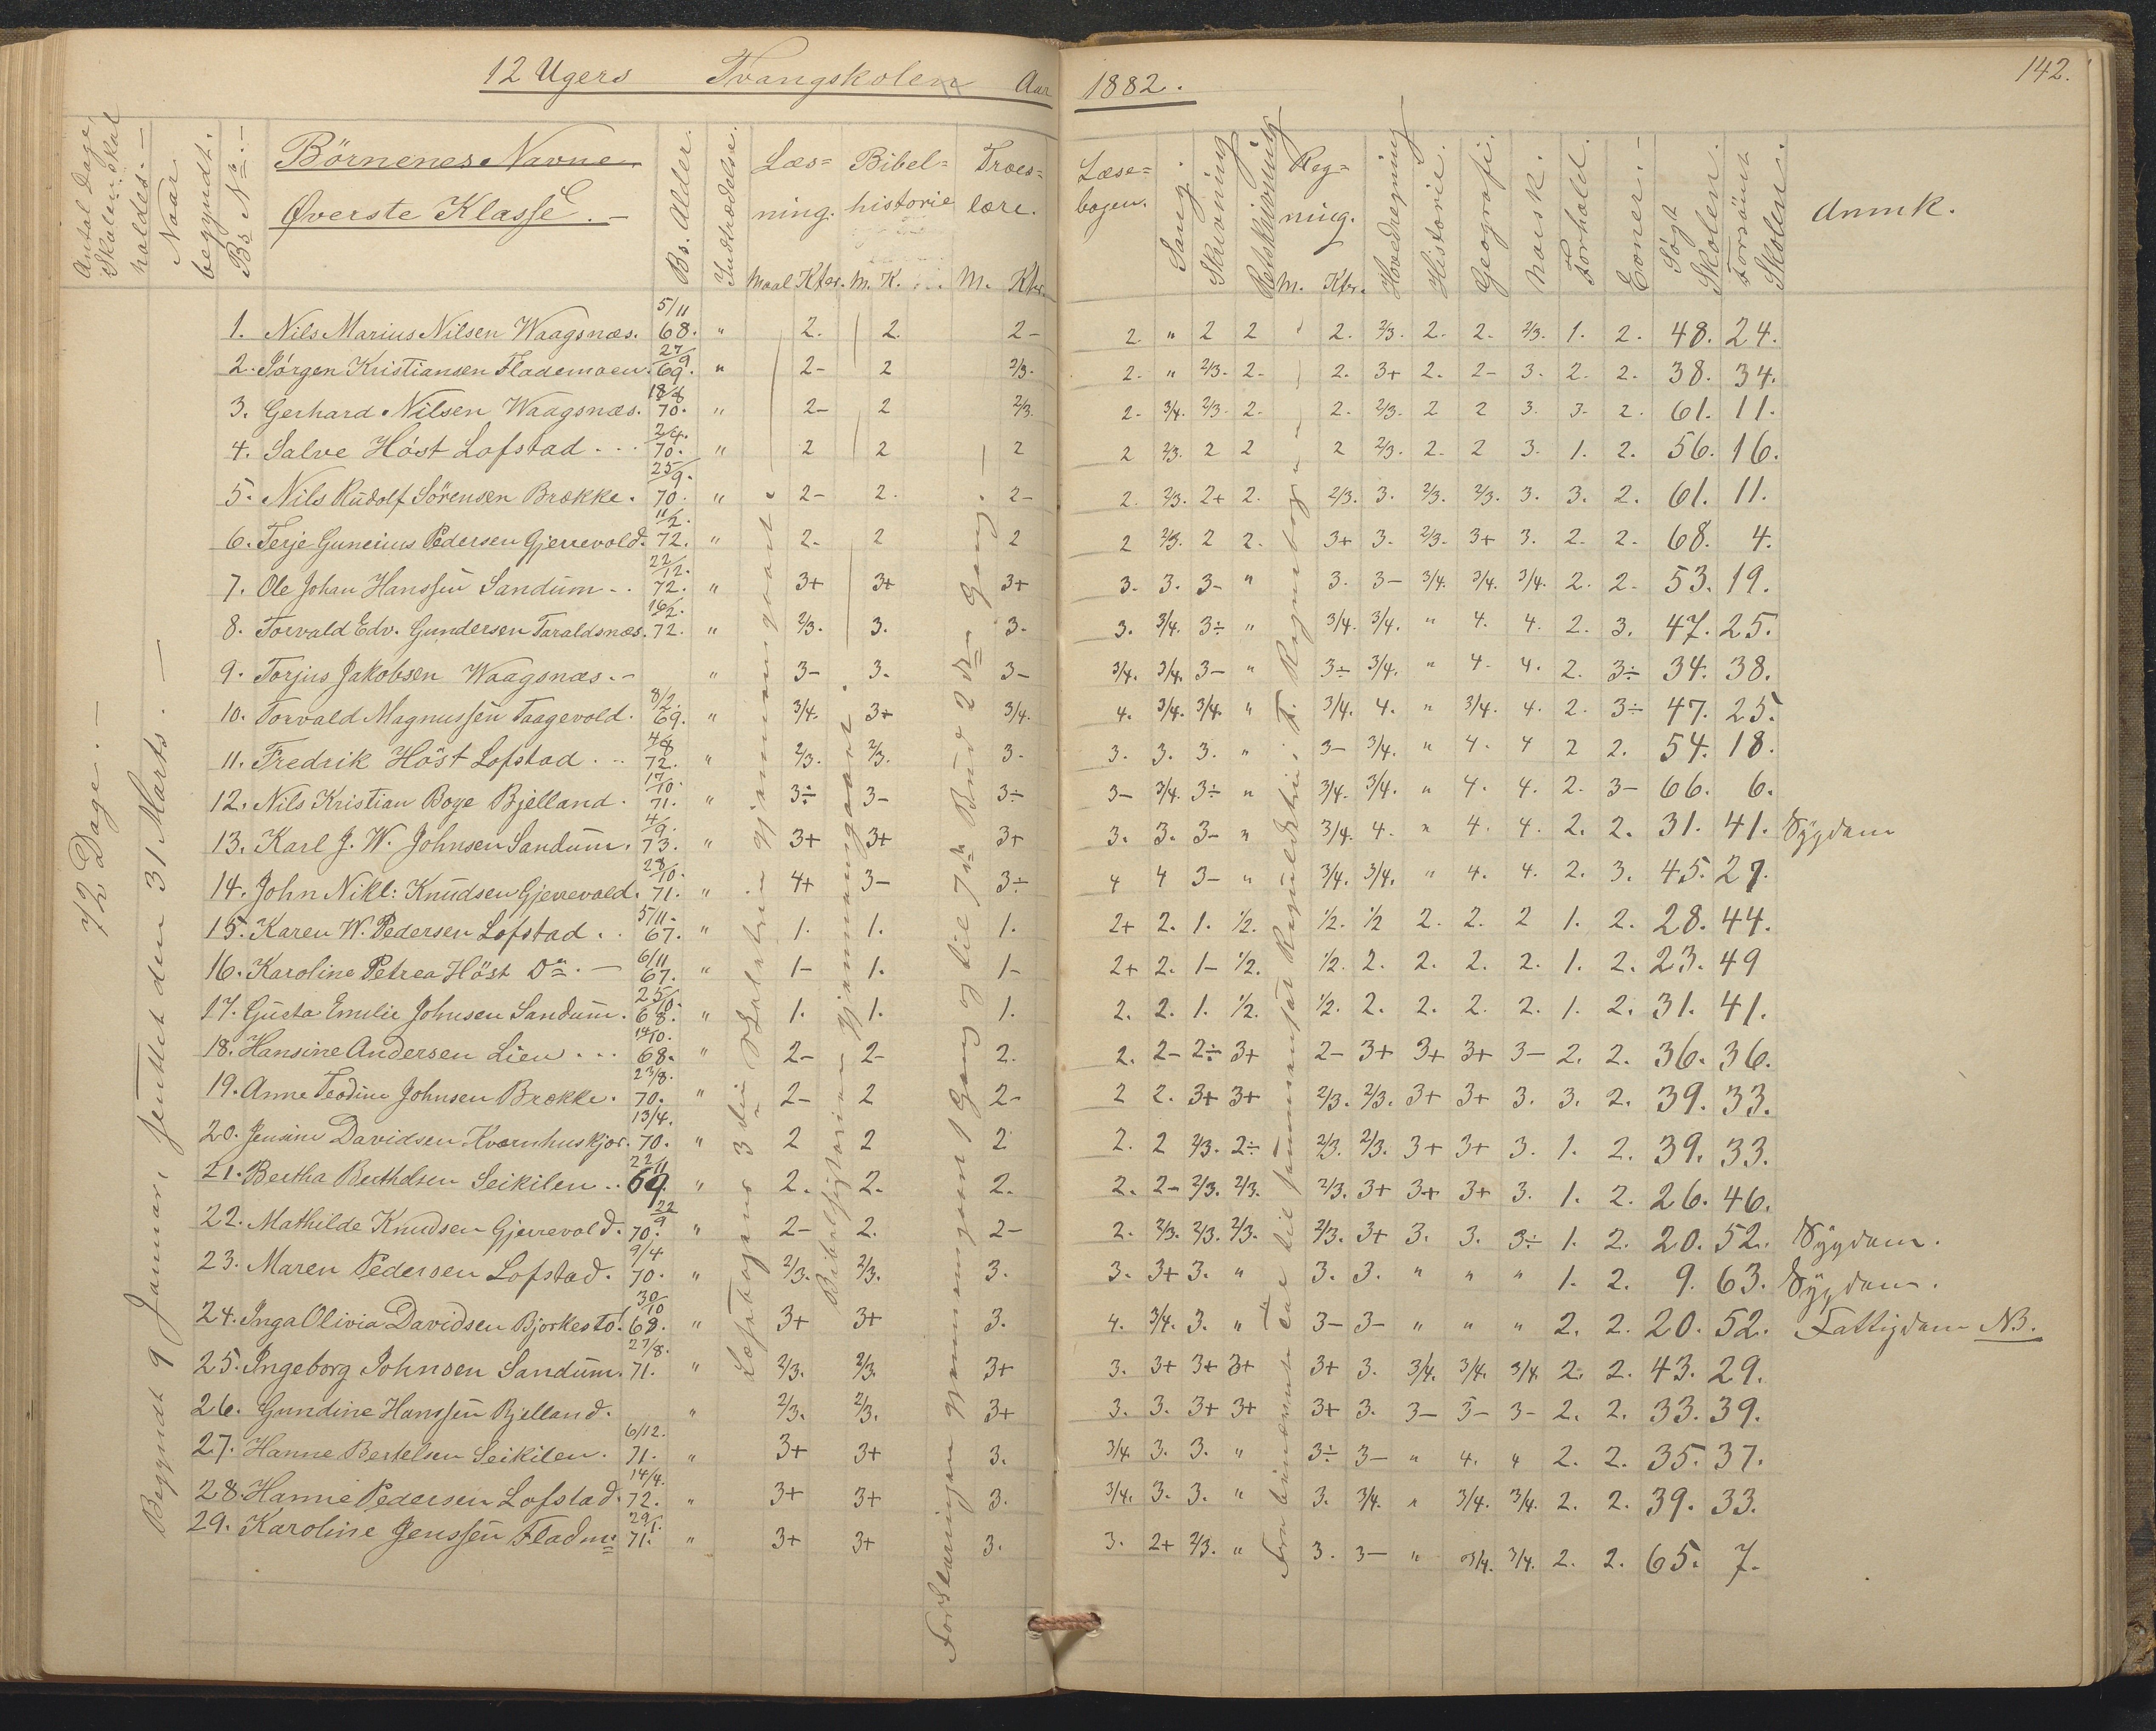 12 Ugers Tvangskolen Aar 1882. 142.
Antal Dage, Skolen skal holdes. –
Naar begyndt.
Bs No. –
Börnenes Navne
Øverste Klasse. –
Bs. Alder.
Indtrædelse.
Læsning. Maal Kter.
Bibelhistorie M. K.
Troeslære. M. Kter.
Læsebogen.
Sang.
Skrivning
Retskrivning
Regning. M. Kter.
Hovedregning
Historie.
Geografi.
Norsk.
Forhold.
Evner. –
Søgt Skolen.
Forsömt Skolen.
Anmk.
72 Dage. –
Begyndt 9 Januar, sluttet den 31 Marts. –
1. Nils Marius Nilsen Waagsnæs. 5/11 68. " 2. 2. 2- 2. " 2 2 2. 2/3. 2. 2. 2/3. 1. 2. 48. 24.
2. Jörgen Kristiansen Flademoen. 27/9 69. " 2- 2 2/3. 2. " 2/3. 2- 2. 3+ 2. 2- 3. 2. 2. 38. 34.
3. Gerhard Nilsen Waagsnæs. 18/8 70. " 2- 2 2/3. 2- 3/4. 2/3. 2. 2. 2/3. 2 2 3. 3. 2. 61. 11.
4. Salve Höst Lofstad 24. 70. " 2 2 2 2 2/3. 2 2 2 2/3. 2. 2 3. 1. 2. 56. 16.
5. Nils Rudolf Sörensen Brække. 25/9. 70. " 2- 2. 2- 2. 2/3. 2+ 2. 2/3. 3. 2/3. 2/3. 3. 3. 2. 61. 11.
6. Terje Guneius Pedersen Gjerrevold. 11/2. 72. " 2- 2 2 2 2/3. 2 2. 3+ 3. 2/3. 3+ 3. 2. 2. 68. 4.
7. Ole Johan Hanssen Sandum 22/12. 72. " 3+ 3+ 3+ 3. 3. 3- " 3. 3- 3/4. 3/4. 3/4. 2. 2. 53. 19.
8. Torvald Edv. Gundersen Taraldsnæs. 16/2. 72. " 2/3. 3. 3. 3. 3/4. 3÷ " 3/4. 3/4. " 4. 4. 2. 3. 47. 25.
9. Torjus Jakobsen Waagsnæs. – " 3- 3. 3- 3/4. 3/4. 3- " 3÷ 3/4. " 4. 4. 2. 3÷ 34. 38.
10. Torvald Magnussen Taagevold. 8/2. 69. " 3/4. 3+ 3/4. 4. 3/4. 3/4. " 3/4. 4. " 3/4. 4. 2. 3÷ 47. 25.
11. Fredrik Höst Lofstad 4/8 72. " 2/3. 2/3. 3. 3. 3. 3. " 3- 3/4. " 4. 4 2 2. 54. 18.
12. Nils Kristian Boye Bjelland. 17/10. 71. " 3÷ 3- 3÷ 3- 3/4. 3÷ " 3/4. 3/4. " 4. 4. 2. 3- 66. 6.
13. Karl J. W. Johnsen Sandum. 4/9. 73. " 3+ 3+ 3+ 3. 3. 3- " 3/4. 4. " 4. 4. 2. 2. 31. 41. Sygdom
14. John Nikl: Knudsen Gjerrevold. 28/10. 71. " 4+ 3- 3÷ 4 4 3- " 3/4. 3/4. " 4. 4. 2. 3. 45. 27.
15. Karen W. Pedersen Lofstad 5/11. 67. " 1. 1. 1. 2+ 2. 1. 1/2. 1/2. 1/2 2. 2. 2 1. 2. 28. 44.
16. Karoline Petrea Höst Do. – 6/11 67. " 1- 1. 1- 2+ 2. 1- 1/2. 1/2. 2. 2. 2. 2. 1. 2. 23. 49
17. Gusta Emilie Johnsen Sandum. 25/10. 68. " 1. 1. 1. 2. 2. 1. 1/2. 1/2. 2. 2. 2. 2. 1. 2. 31. 41.
18. Hansine Andersen Lien 14/10. 68. " 2- 2- 2. 2. 2- 2÷ 3+ 2- 3+ 3+ 3+ 3- 2. 2. 36. 36.
19. Anne Teodine Johnsen Brække. 23/8. 70. " 2- 2 2- 2 2. 3+ 3+ 2/3. 2/3. 3+ 3+ 3. 3. 2. 39. 33.
20. Jensine Davidsen Kværnhuskjær. 13/4. 70. " 2 2 2 2. 2 2/3. 2÷ 2/3. 2/3. 3+ 3+ 3. 1. 2. 39. 33.
21. Bertha Berthelsen Seikilen 22/11 69. " 2. 2. 2. 2. 2- 2/3. 2/3. 2/3. 3+ 3+ 3+ 3. 1. 2. 26. 46.
22. Mathilde Knudsen Gjerrevold. 22/9 70. " 2- 2. 2- 2. 2/3. 2/3. 2/3. 2/3. 3+ 3. 3. 3÷ 1. 2. 20. 52. Sygdom.
23. Maren Pedersen Lofstad. 9/4 70. " 2/3. 2/3. 3. 3. 3+ 3. " 3. 3. " " " 1. 2. 9. 63. Sygdom.
24. Inga Olivia Davidsen Bjorkesto! 30/10 68. " 3+ 3+ 3. 4. 3/4. 3. " 3- 3- " " " 2. 2. 20. 52. Fattigdom NB.
25. Ingeborg Johnsen Sandum. 27/8. 71. " 2/3. 2/3. 3+ 3. 3+ 3+ 3+ 3+ 3. 3/4. 3/4. 3/4 2. 2. 43. 29.
26. Gundine Hanssen Bjelland. " 2/3. 2/3. 3+ 3. 3. 3+ 3+ 3+ 3. 3- 3- 3- 2. 2. 33. 39.
27. Hanne Bertelsen Seikilen. 6/12. 71. " 3+ 3+ 3. 3/4 3. 3. " 3÷ 3- " 4. " 2. 2. 35. 37.
28. Hanne Pedersen Lofstad. 14/4. 72. " 3+ 3+ 3. 3/4. 3. 3. " 3. 3/4. " 3/4. 3/4. 2. 2. 39. 33.
29. Karoline Jenssen Fladm: 29/1. 71. " 3+ 3+ 3. 3. 2+ 2/3. " 3. 3- " 3/4. 3/4. 2. 2. 65. 7.
Læsebogens 3die gjennemgaaet.
Bibelhistorien gjennemgaaet.
Forklaringen gjennemgaaet 1 Gang og til 7de Bud 2den Gang. –